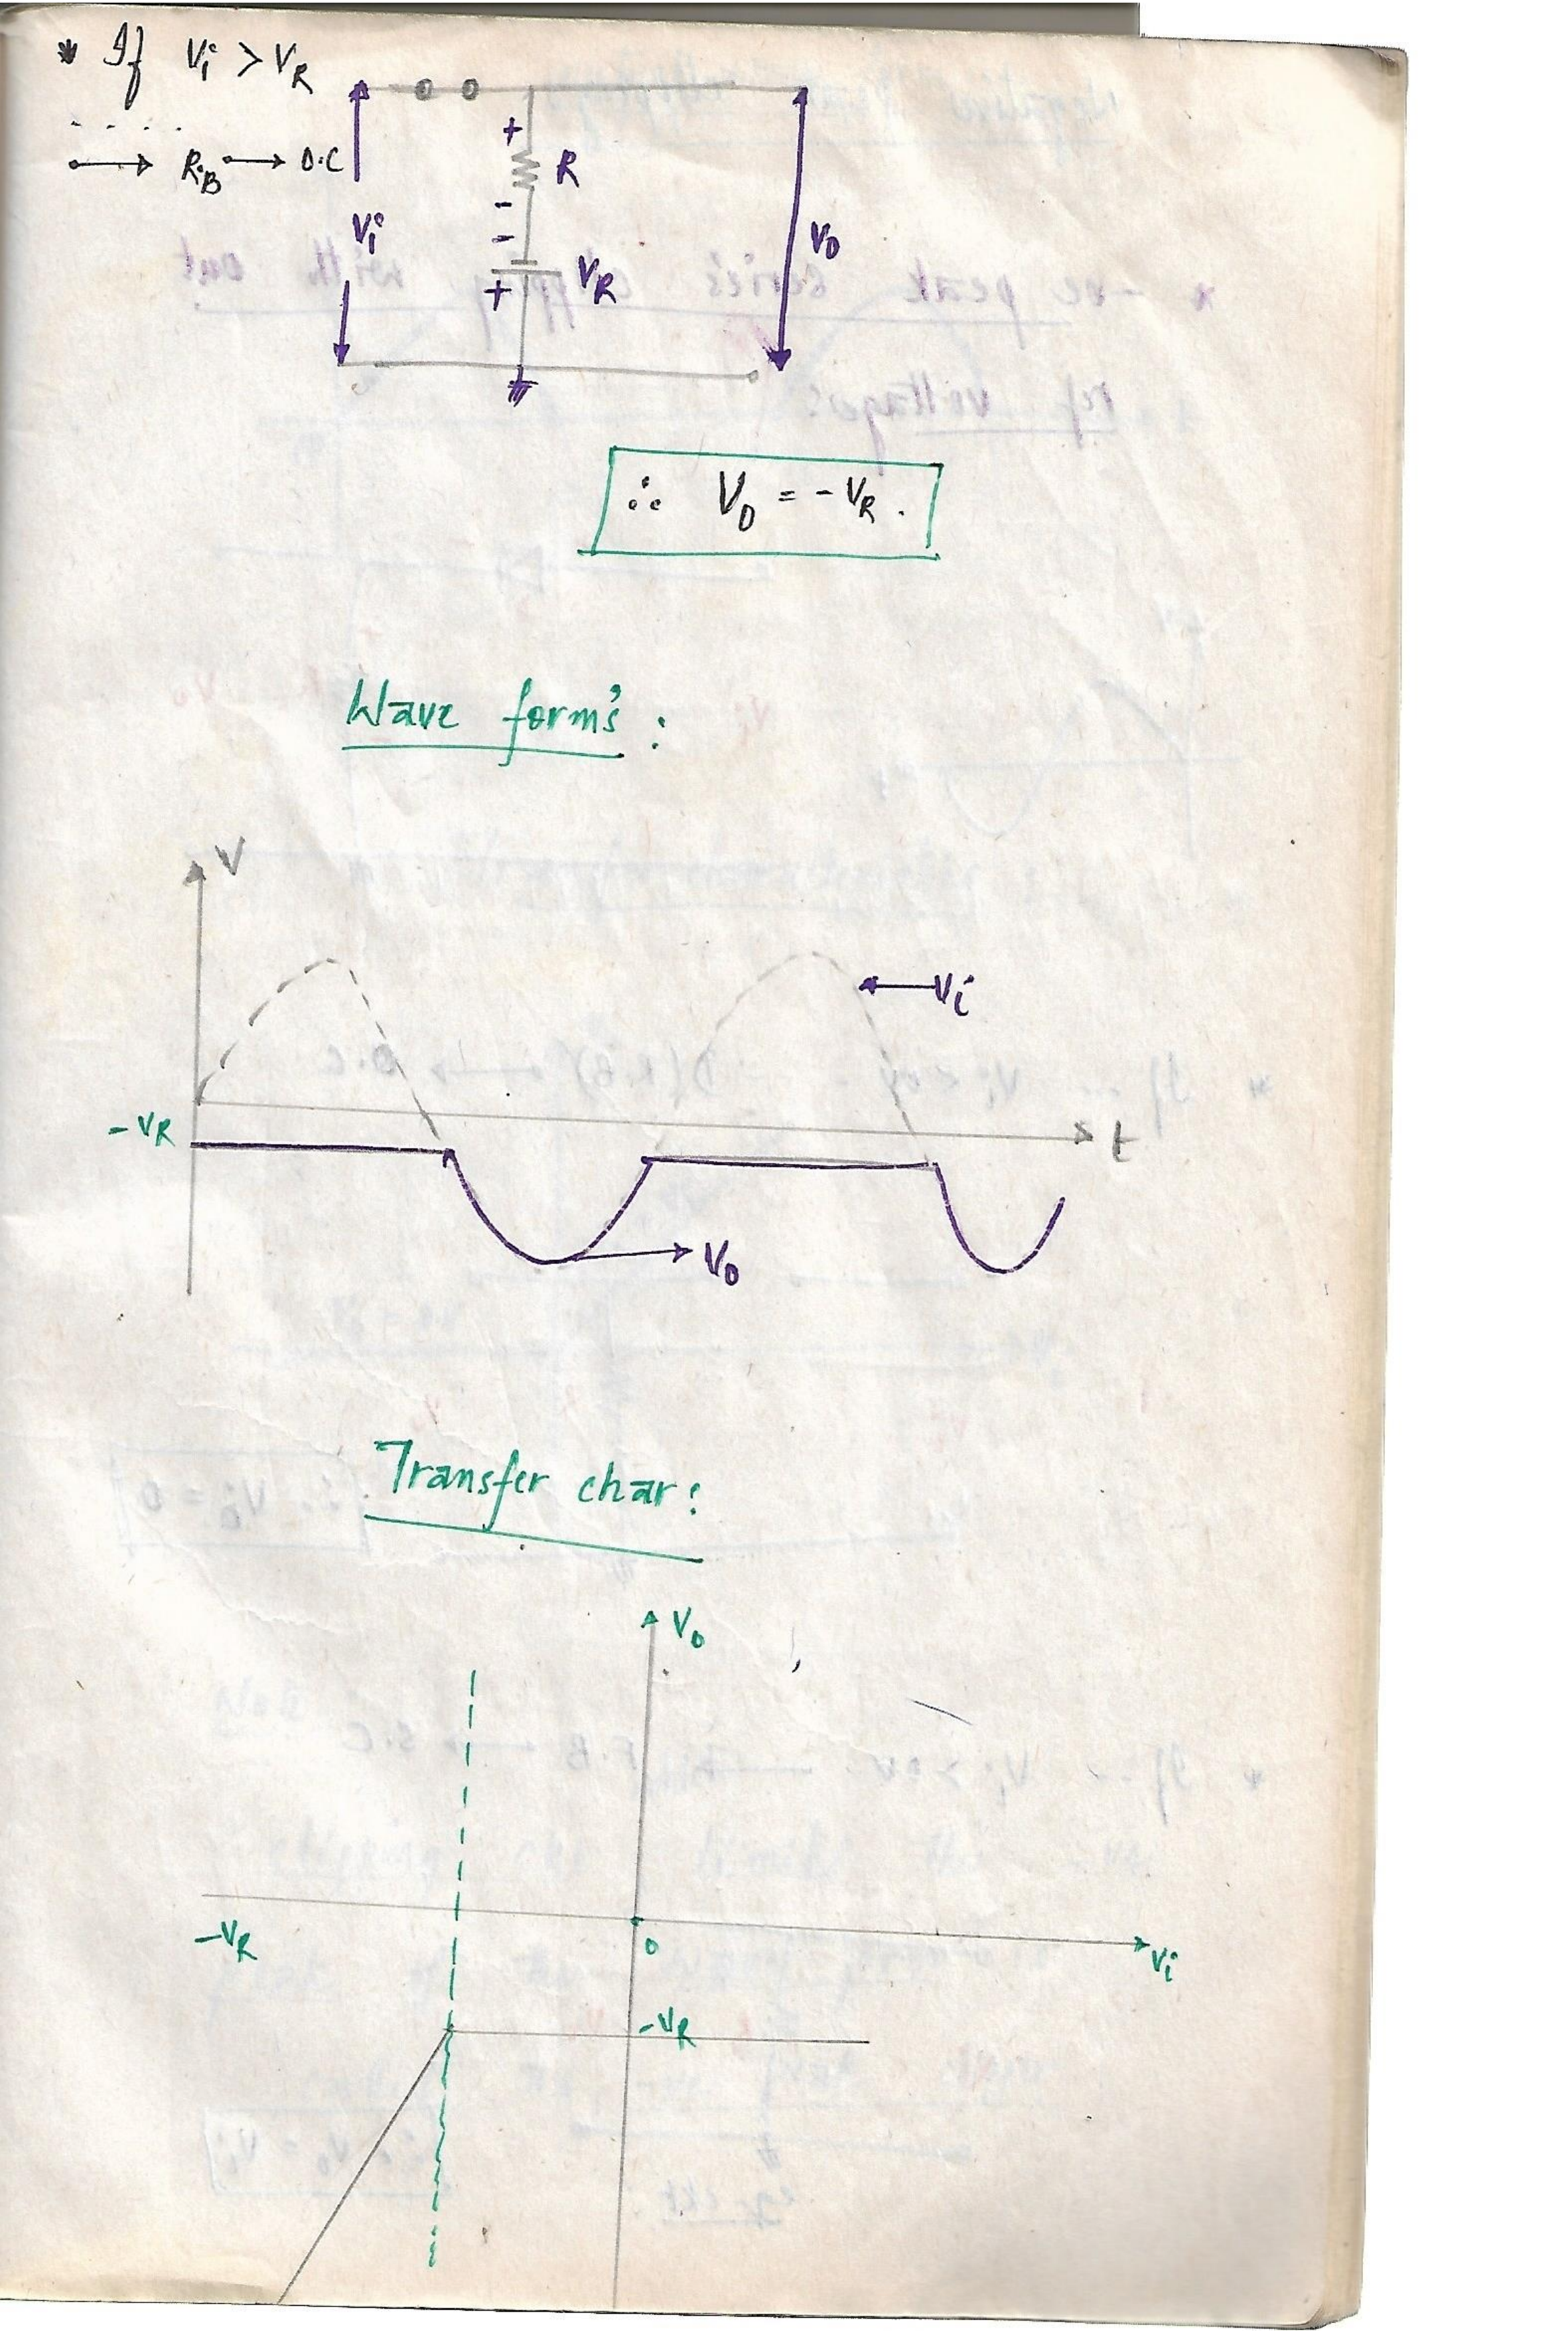 * If Vi > VR
→ R.B → O.C
+
R
-
Vi
-
VO
VR
+
∴ VO = -VR.
Wave form's :
V
Vi
-VR
t
VO
Transfer char:
Vo
-VR
0
Vi
-VR